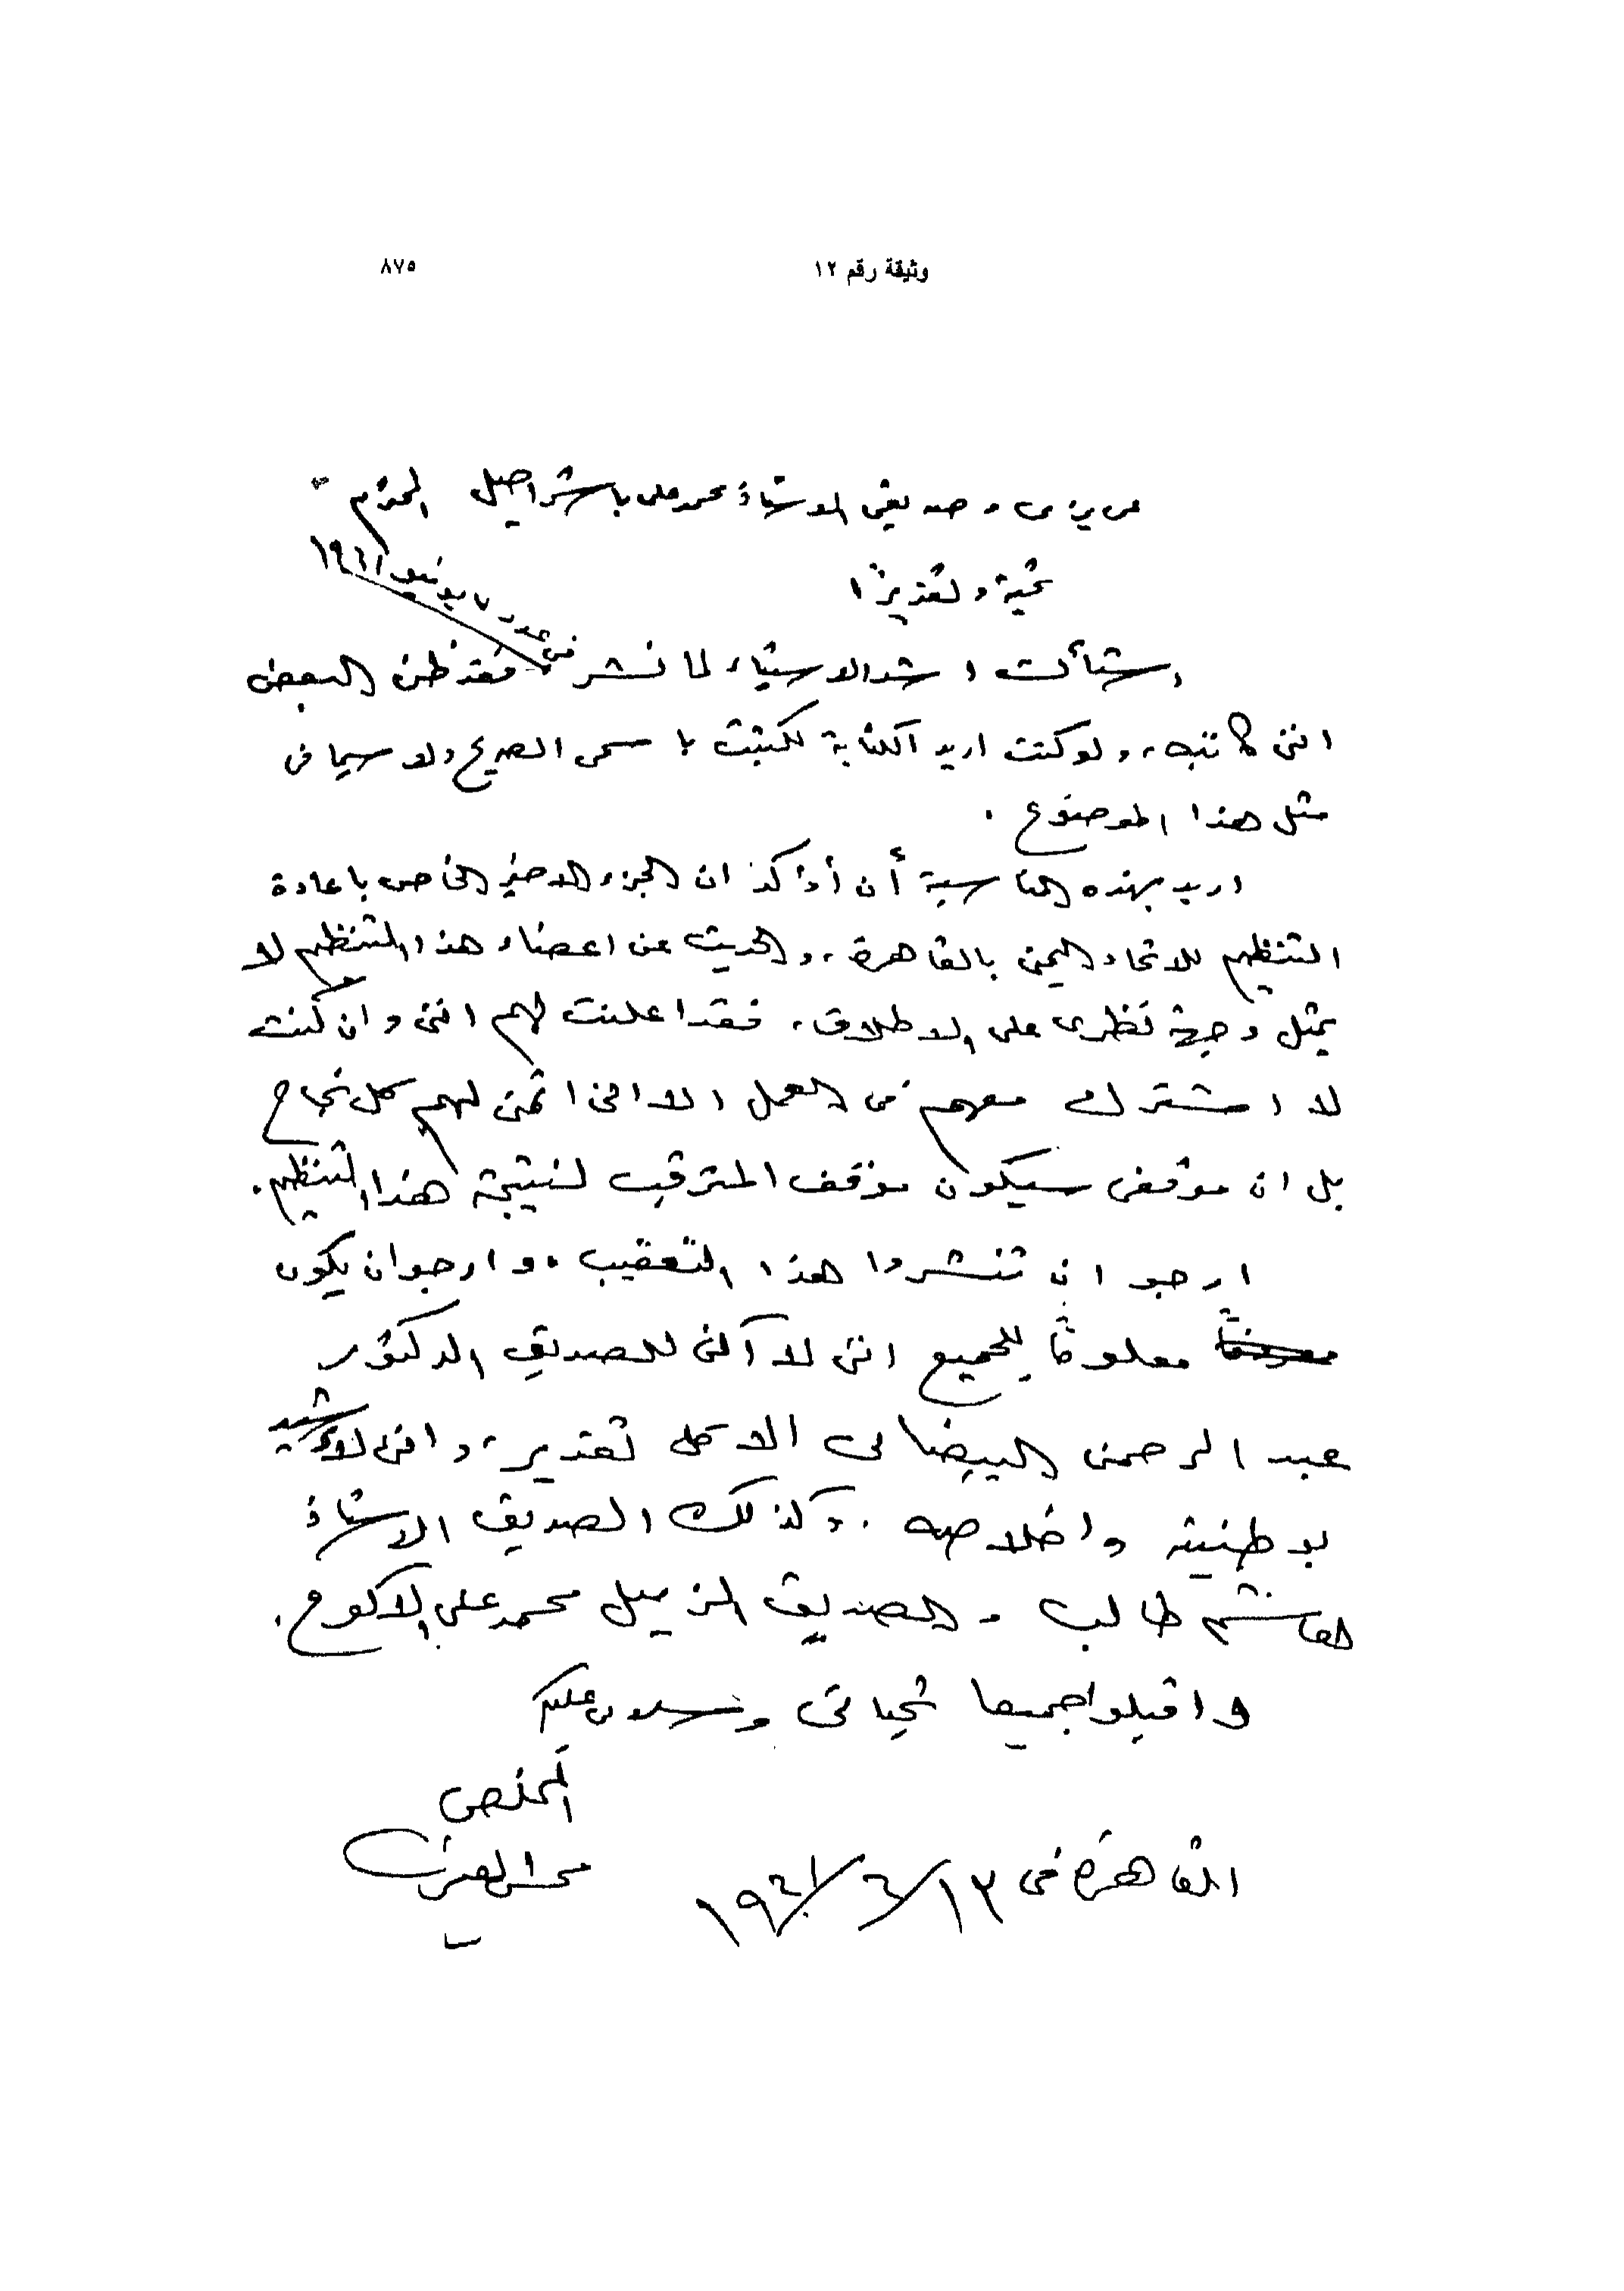 وثيقة رقم ١٢
٨٧٥
عزيزى وصديقى الاستاذ محمد على باشراحيل المحترم
تحية وتقديرًا
استأت اشد الاستياء لما نشر فى عدد ٧ يونيو ١٩٦١ فقد ظن البعض
اننى كاتبه، ولو كنت اريد الكتابة لكتبت باسمى الصريح ولا سيما فى
مثل هذا الموضوع .
اريد بهذه المناسبة أن أؤكد ان الجزء الاخير الخاص باعادة
التنظيم للاتحاد اليمنى بالقاهرة، والحديث عن اعضاء هذا التنظيم لا
يمثل وجهة نظرى على الاطلاق، فقد اعلنت لهم اننى وان كنت
لا اشترك معهم فى العمل الا اننى اتمنى لهم كل نجاح
بل ان موقفى سيكون موقف المترقب لنتيجة هذا التنظيم.
ارجو ان تنشروا هذا التعقيب، وارجو ان يكون
معلومًا للجميع اننى لا أكن للصديق الدكتور
عبد الرحمن البيضانى الا كل تقدير، واننى لأشيد
بوطنيته واخلاصه . وكذلك الصديق الاستاذ
هاشم طالب والصديق الزميل محمد على الاكوع.
واقبلوا جميعا تحياتى وسلامى عليكم
المخلص
محسن العينى
القاهرة فى ١٣/٦/١٩٦١